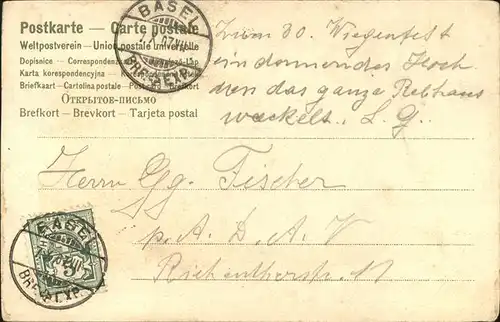 Postkarte — Carte postale
Weltpostverein — Union postale universelle
Dopisnice — Correspondenz
Karta korespondencyjna —
Briefkaart — Cartolina postale —
Открытое-письмо
Brefkort — Brevkort — Tarjeta postal
BASEL
BRF. EXP.
Zum 30. Wiegenfest
ein donnerndes Hoch
dass das ganze Rebhaus
wackelt. L. G.
Herrn Gg. Fischer
p. A. D. A. V
Richenthorstr. 11
BASEL
BRF. EXP.